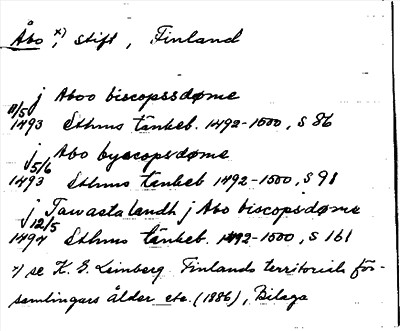 Åbo x), stift, Finland
j Aboo biscopssdøme
11/5 1493 Sthms tänkeb. 1492-1500, s 86
j Abo byscopsdøme
5/6 1493 Sthms tänkeb 1492-1500, s 91
j Tawastalandh j Abo biscopsdøme
12/5 1494 Sthms tänkeb. 1492-1500, s 161
x) se K. G. Leinberg Finlands territoriala för-
samlingars ålder etc. (1886), Bilaga